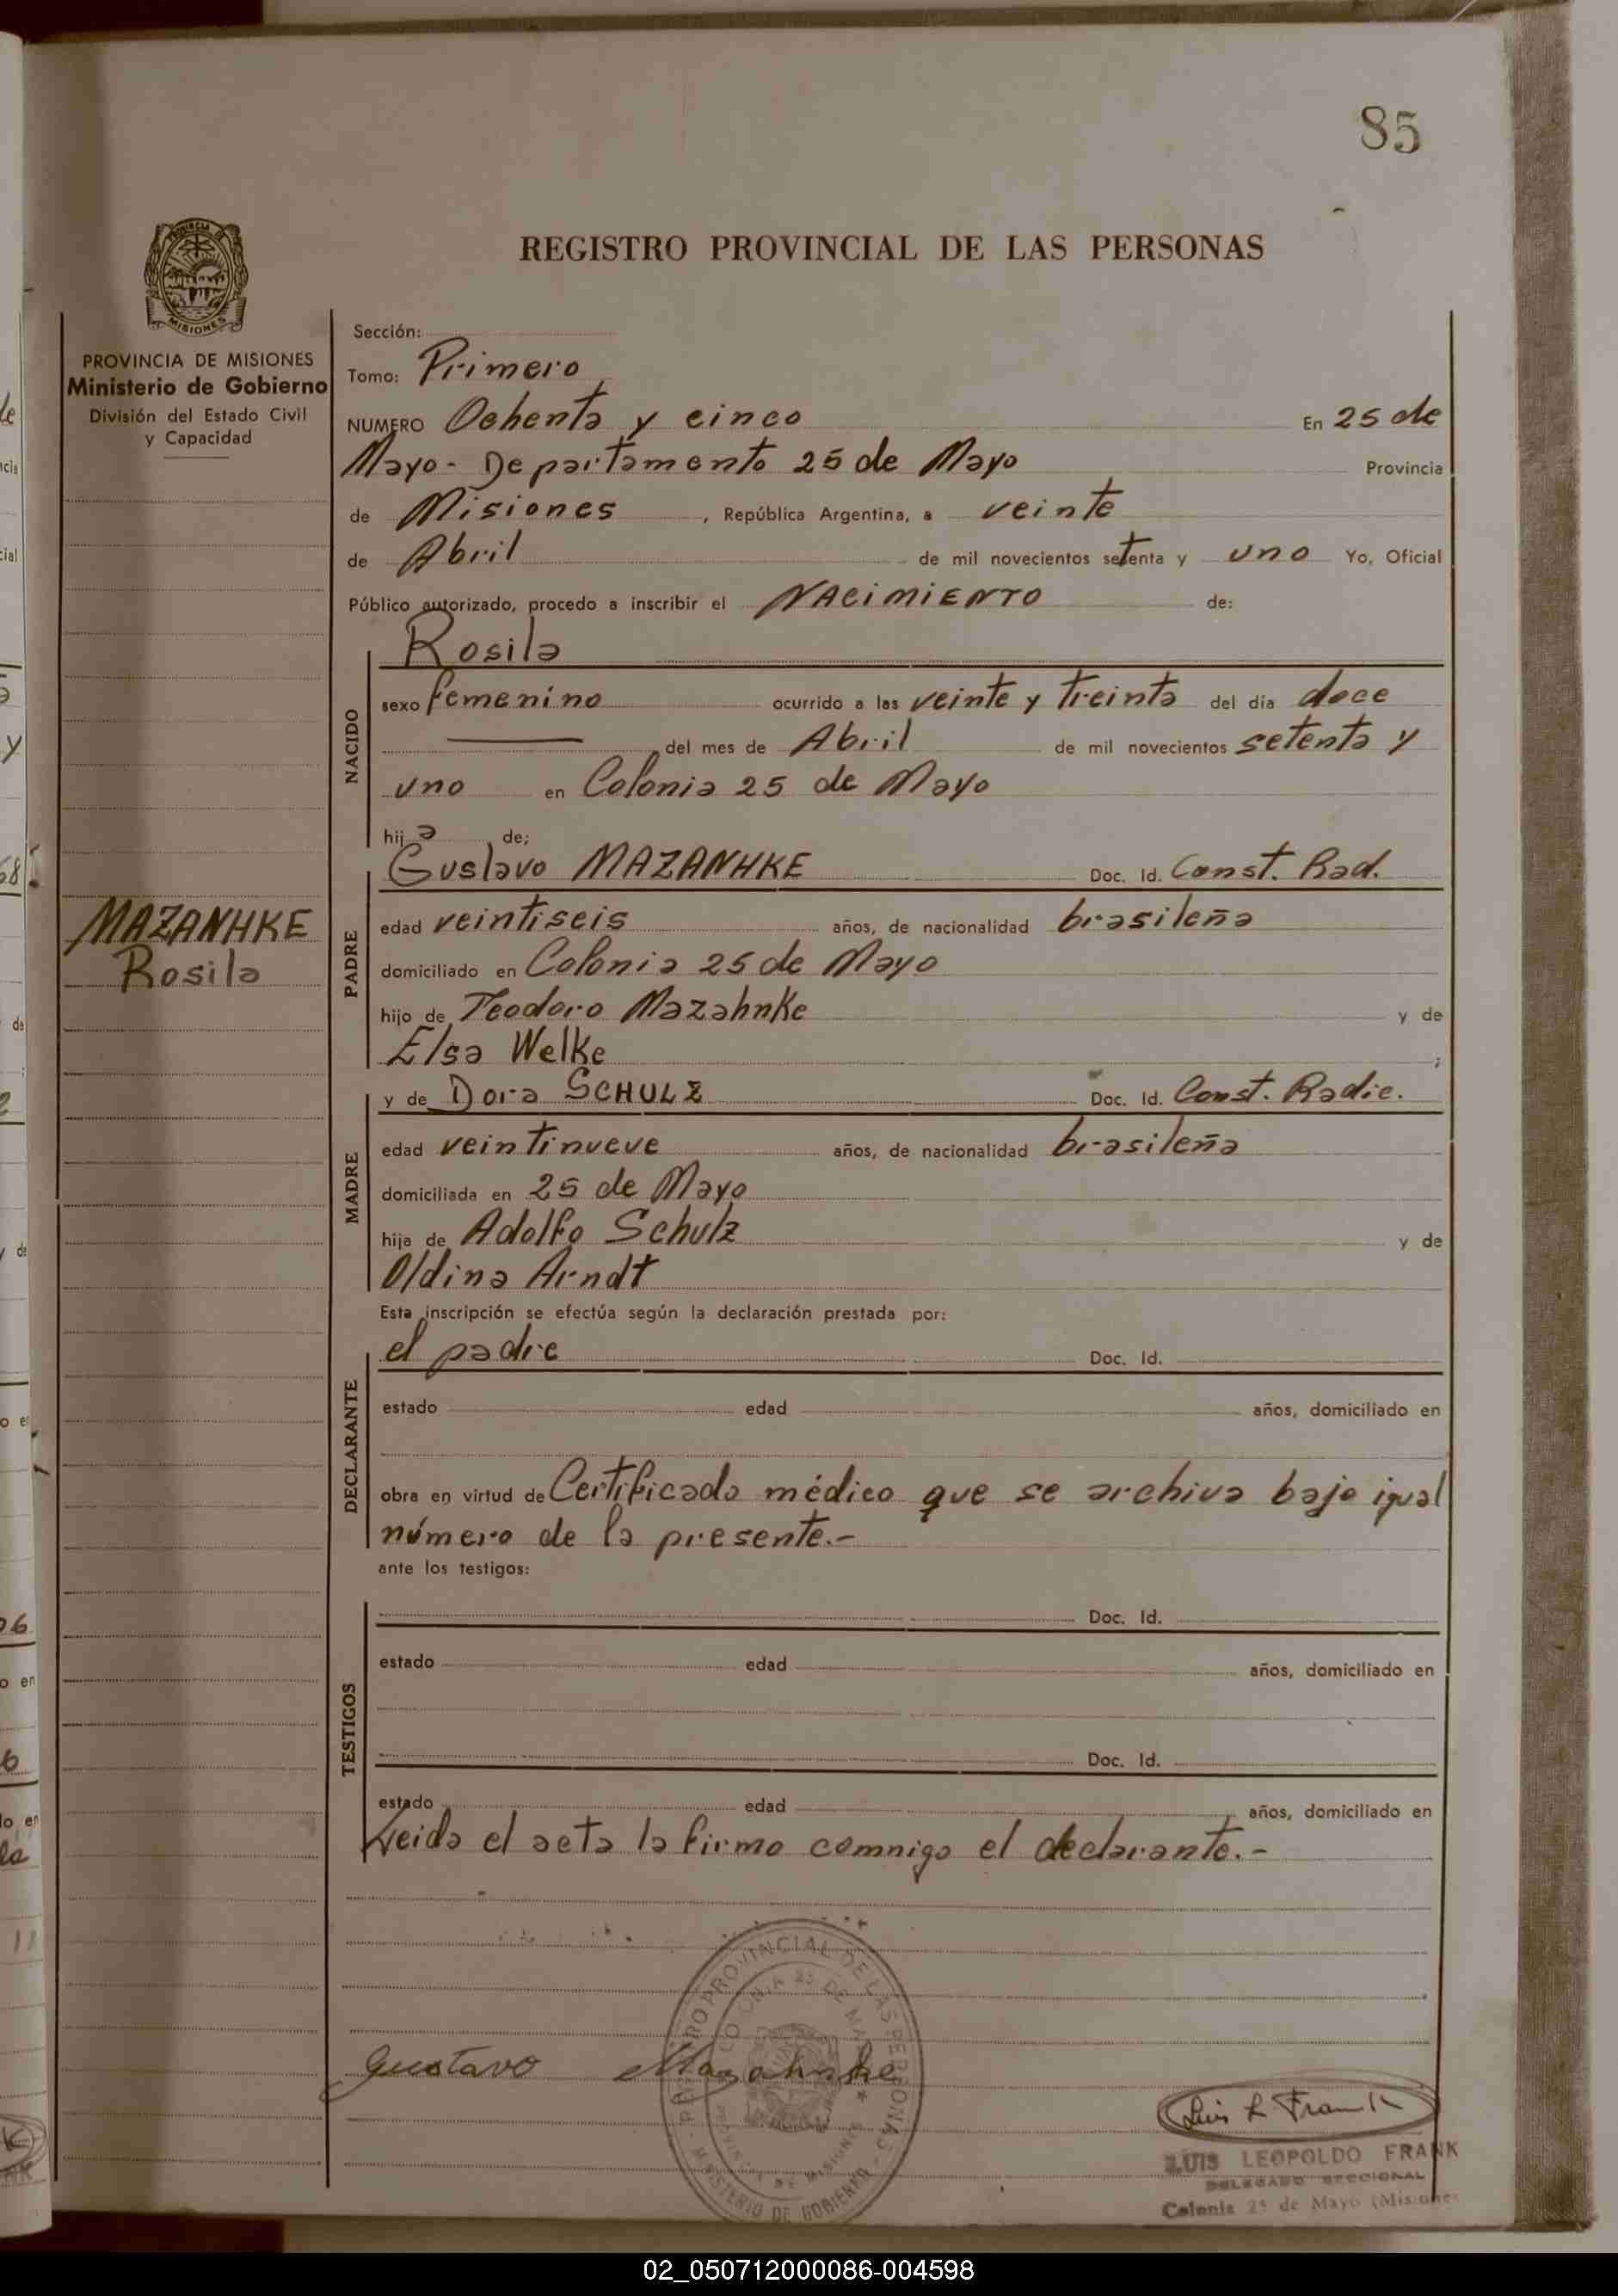 85
REGISTRO PROVINCIAL DE LAS PERSONAS
MISIONES
PROVINCIA DE MISIONES
Ministerio de Gobierno
División del Estado Civil
y Capacidad
MAZANHKE
Rosila
Sección:
Tomo: Primero
NUMERO Ochenta y cinco En 25 de
Mayo - Departamento 25 de Mayo Provincia
de Misiones, República Argentina, a veinte
de Abril de mil novecientos setenta y uno Yo, Oficial
Público autorizado, procedo a inscribir el NACIMIENTO de:
NACIDO
Rosila
sexo femenino ocurrido a las veinte y treinta del día doce
— del mes de Abril de mil novecientos setenta y
uno en Colonia 25 de Mayo
hija de;
PADRE
Gustavo MAZANHKE Doc. Id. Const. Rad.
edad veintiseis años, de nacionalidad brasileña
domiciliado en Colonia 25 de Mayo
hijo de Teodoro Mazahnke y de
Elsa Welke ;
MADRE
y de Dora SCHULZ Doc. Id. Const. Radic.
edad veintinueve años, de nacionalidad brasileña
domiciliada en 25 de Mayo
hija de Adolfo Schulz y de
Oldina Arndt
Esta inscripción se efectúa según la declaración prestada por:
DECLARANTE
el padre Doc. Id.
estado edad años, domiciliado en
obra en virtud de Certificado médico que se archiva bajo igual
número de la presente.-
ante los testigos:
TESTIGOS
Doc. Id.
estado edad años, domiciliado en
Doc. Id.
estado edad años, domiciliado en
Leida el acta la firma comnigo el declarante.-
REGISTRO PROVINCIAL DE LAS PERSONAS - MINISTERIO DE GOBIERNO
COLONIA 25 DE MAYO
PROVINCIA DE MISIONES
Gustavo Mazahnke
Luis L Frank
LUIS LEOPOLDO FRANK
DELEGADO SECCIONAL
Colonia 25 de Mayo (Misiones
02_050712000086-004598